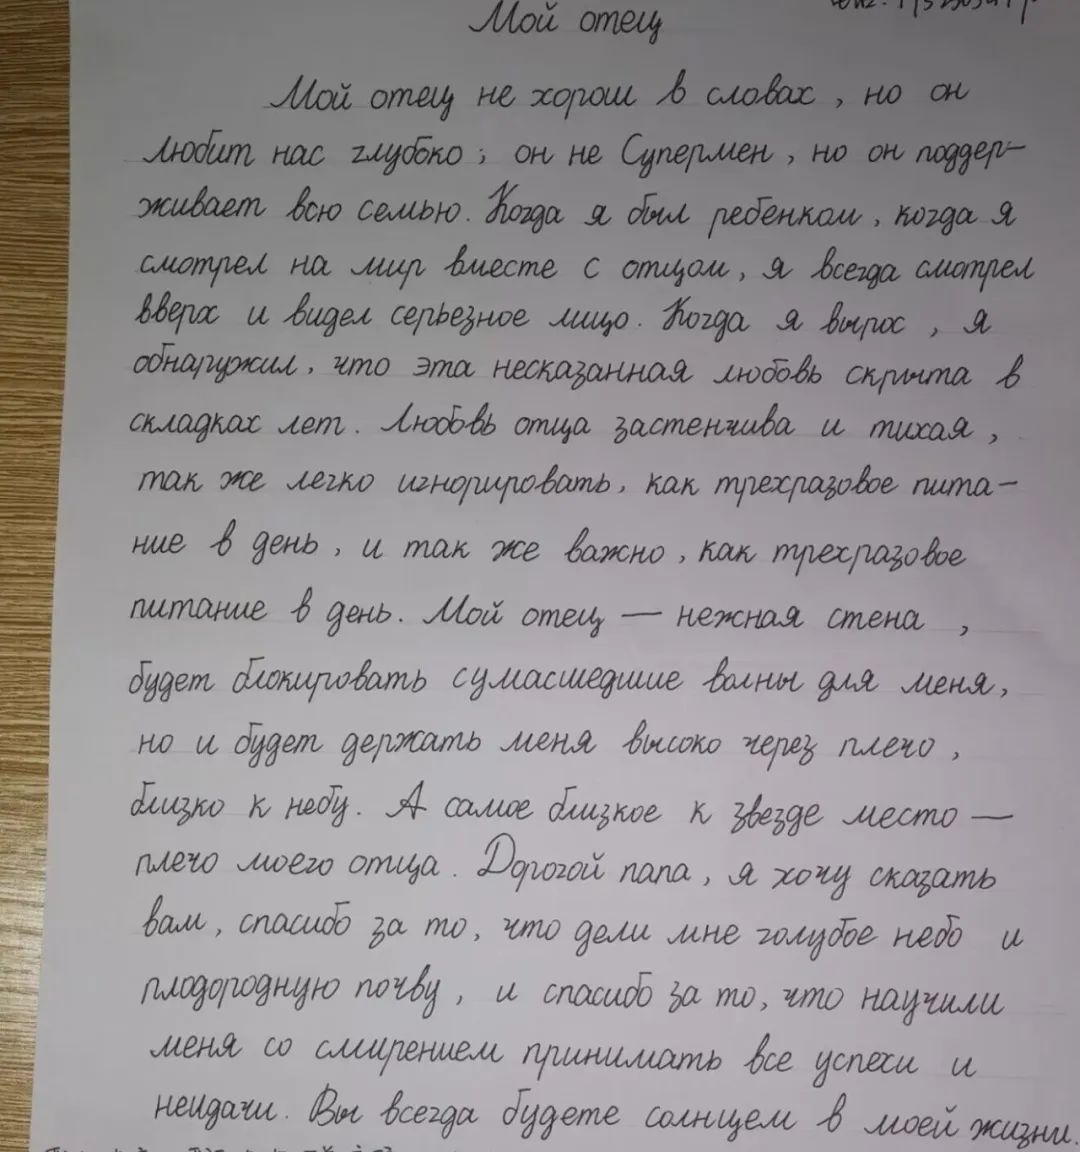 Мой отец
Мой отец не хорош в словах, но он
любит нас глубоко; он не Супермен, но он поддер-
живает всю семью. Когда я был ребенком, когда я
смотрел на мир вместе с отцом, я всегда смотрел
вверх и видел серьезное лицо. Когда я вырос, я
обнаружил, что эта несказанная любовь скрыта в
складках лет. Любовь отца застенчива и тихая,
так же легко игнорировать, как трехразовое пита-
ние в день, и так же важно, как трехразовое
питание в день. Мой отец — нежная стена,
будет блокировать сумасшедшие волны для меня,
но и будет держать меня высоко через плечо,
близко к небу. А самое близкое к звезде место —
плечо моего отца. Дорогой папа, я хочу сказать
вам, спасибо за то, что дели мне голубое небо и
плодородную почву, и спасибо за то, что научили
меня со смирением принимать все успехи и
неидачи. Вы всегда будете солнцем в моей жизни.